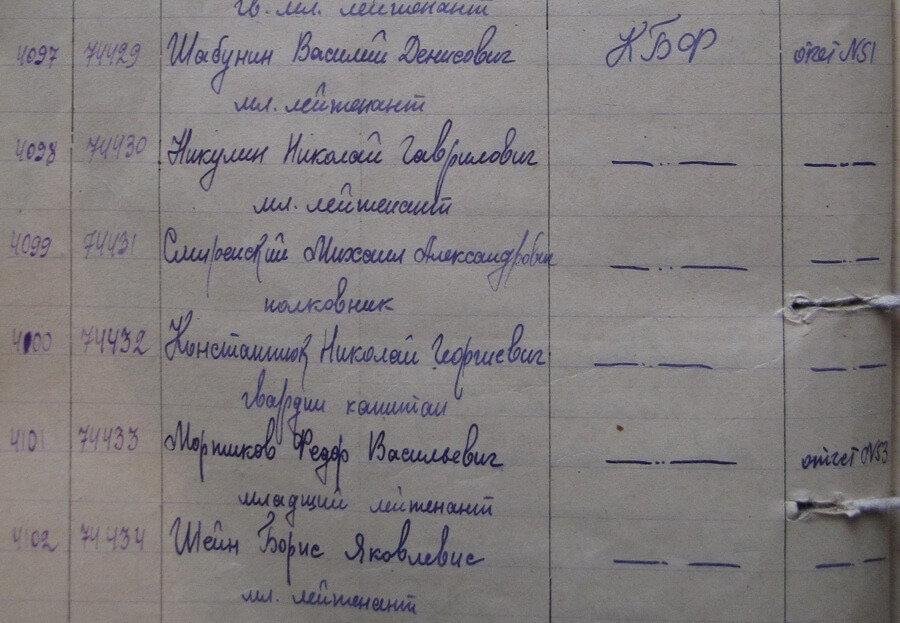 гв. мл. лейтенант
4097 74429 Шабунин Василий Денисович КБФ отчет N51
мл. лейтенант
4098 74430 Никулин Николай Гаврилович —..— —..—
мл. лейтенант
4099 74431 Смиренский Михаил Александрович —..— —..—
полковник
4100 74432 Николай Георгиевич —..— —..—
гвардии капитан
4101 74433 Федор Васильевич —..— отчет N53
младший лейтенант
4102 74434 Шейн Борис Яковлевич —..— —..—
мл. лейтенант